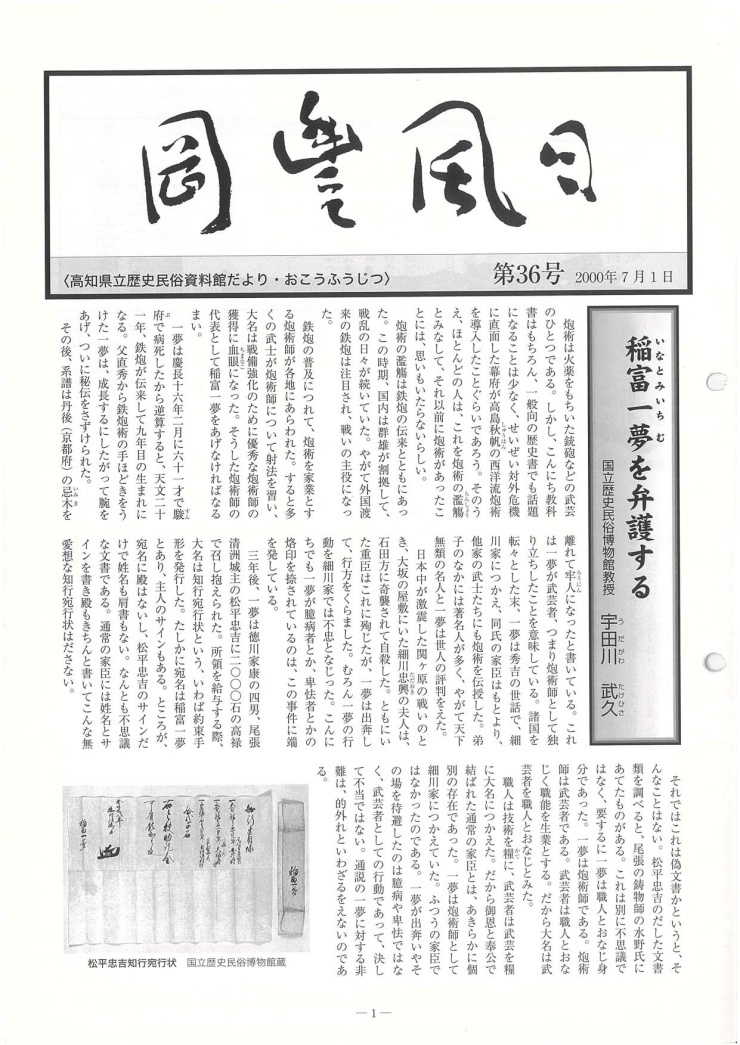 岡豐風日
〈高知県立歴史民俗資料館だより・おこうふうじつ〉
第36号 2000年7月1日
いなとみいちむ
稲富一夢を弁護する
国立歴史民俗博物館教授 宇田川 武久
うだがわ たけひさ
炮術は火薬をもちいた銃砲などの武芸
のひとつである。しかし、こんにち教科
書はもちろん、一般向の歴史書でも話題
になることは少なく、せいぜい対外危機
に直面した幕府が高島秋帆の西洋流炮術
を導入したことぐらいであろう。そのう
え、ほとんどの人は、これを炮術の濫觴
とみなして、それ以前に炮術があったこ
とには、思いもいたらないらしい。
炮術の濫觴は鉄炮の伝来とともにあっ
た。この時期、国内は群雄が割拠して、
戦乱の日々が続いていた。やがて外国渡
来の鉄炮は注目され、戦いの主役になっ
た。
鉄炮の普及につれて、炮術を家業とす
る炮術師が各地にあらわれた。すると多
くの武士が炮術師について射法を習い、
大名は戦備強化のために優秀な炮術師の
獲得に血眼になった。そうした炮術師の
代表として稲富一夢をあげなければなる
まい。
一夢は慶長十六年二月に六十一才で駿
府で病死したから逆算すると、天文二十
一年、鉄炮が伝来して九年目の生まれに
なる。父直秀から鉄炮術の手ほどきをう
けた一夢は、成長するにしたがって腕を
あげ、ついに秘伝をさずけられた。
その後、系譜は丹後（京都府）の忌木を
離れて牢人になったと書いている。これ
は一夢が武芸者、つまり炮術師として独
り立ちしたことを意味している。諸国を
転々とした末、一夢は秀吉の世話で、細
川家につかえ、同氏の家臣はもとより、
他家の武士たちにも炮術を伝授した。弟
子のなかには著名人が多く、やがて天下
無類の名人と一夢は世人の評判をえた。
日本中が激震した関ヶ原の戦いのと
き、大坂の屋敷にいた細川忠興の夫人は、
石田方に奇襲されて自殺した。ともにい
た重臣はこれに殉じたが、一夢は出奔し
て、行方をくらました。むろん一夢の行
動を細川家では不忠となじった。こんに
ちでも一夢が臆病者とか、卑怯者とかの
烙印を捺されているのは、この事件に端
を発している。
三年後、一夢は徳川家康の四男、尾張
清洲城主の松平忠吉に二〇〇〇石の高禄
で召し抱えられた。所領を給与する際、
大名は知行宛行状という、いわば約束手
形を発行した。たしかに宛名は稲富一夢
とあり、主人のサインもある。ところが、
宛名に殿はないし、松平忠吉のサインだ
けで姓名も肩書もない。なんとも不思議
な文書である。通常の家臣には姓名とサ
インを書き殿もきちんと書いてこんな無
愛想な知行宛行状はださない。
それではこれは偽文書かというと、そ
んなことはない。松平忠吉のだした文書
類を調べると、尾張の鋳物師の水野氏に
あてたものがある。これは別に不思議で
はなく、要するに一夢は職人とおなじ身
分であった。一夢は炮術師である。炮術
師は武芸者である。武芸者は職人とおな
じく職能を生業とする。だから大名は武
芸者を職人とおなじとみた。
職人は技術を糧に、武芸者は武芸を糧
に大名につかえた。だから御恩と奉公で
結ばれた通常の家臣とは、あきらかに個
別の存在であった。一夢は炮術師として
細川家につかえていた。ふつうの家臣で
はなかったのである。一夢が出奔いやそ
の場を待避したのは臆病や卑怯ではな
く、武芸者としての行動であって、決し
て不当ではない。通説の一夢に対する非
難は、的外れといわざるをえないのであ
る。
松平忠吉知行宛行状 国立歴史民俗博物館蔵
―1―